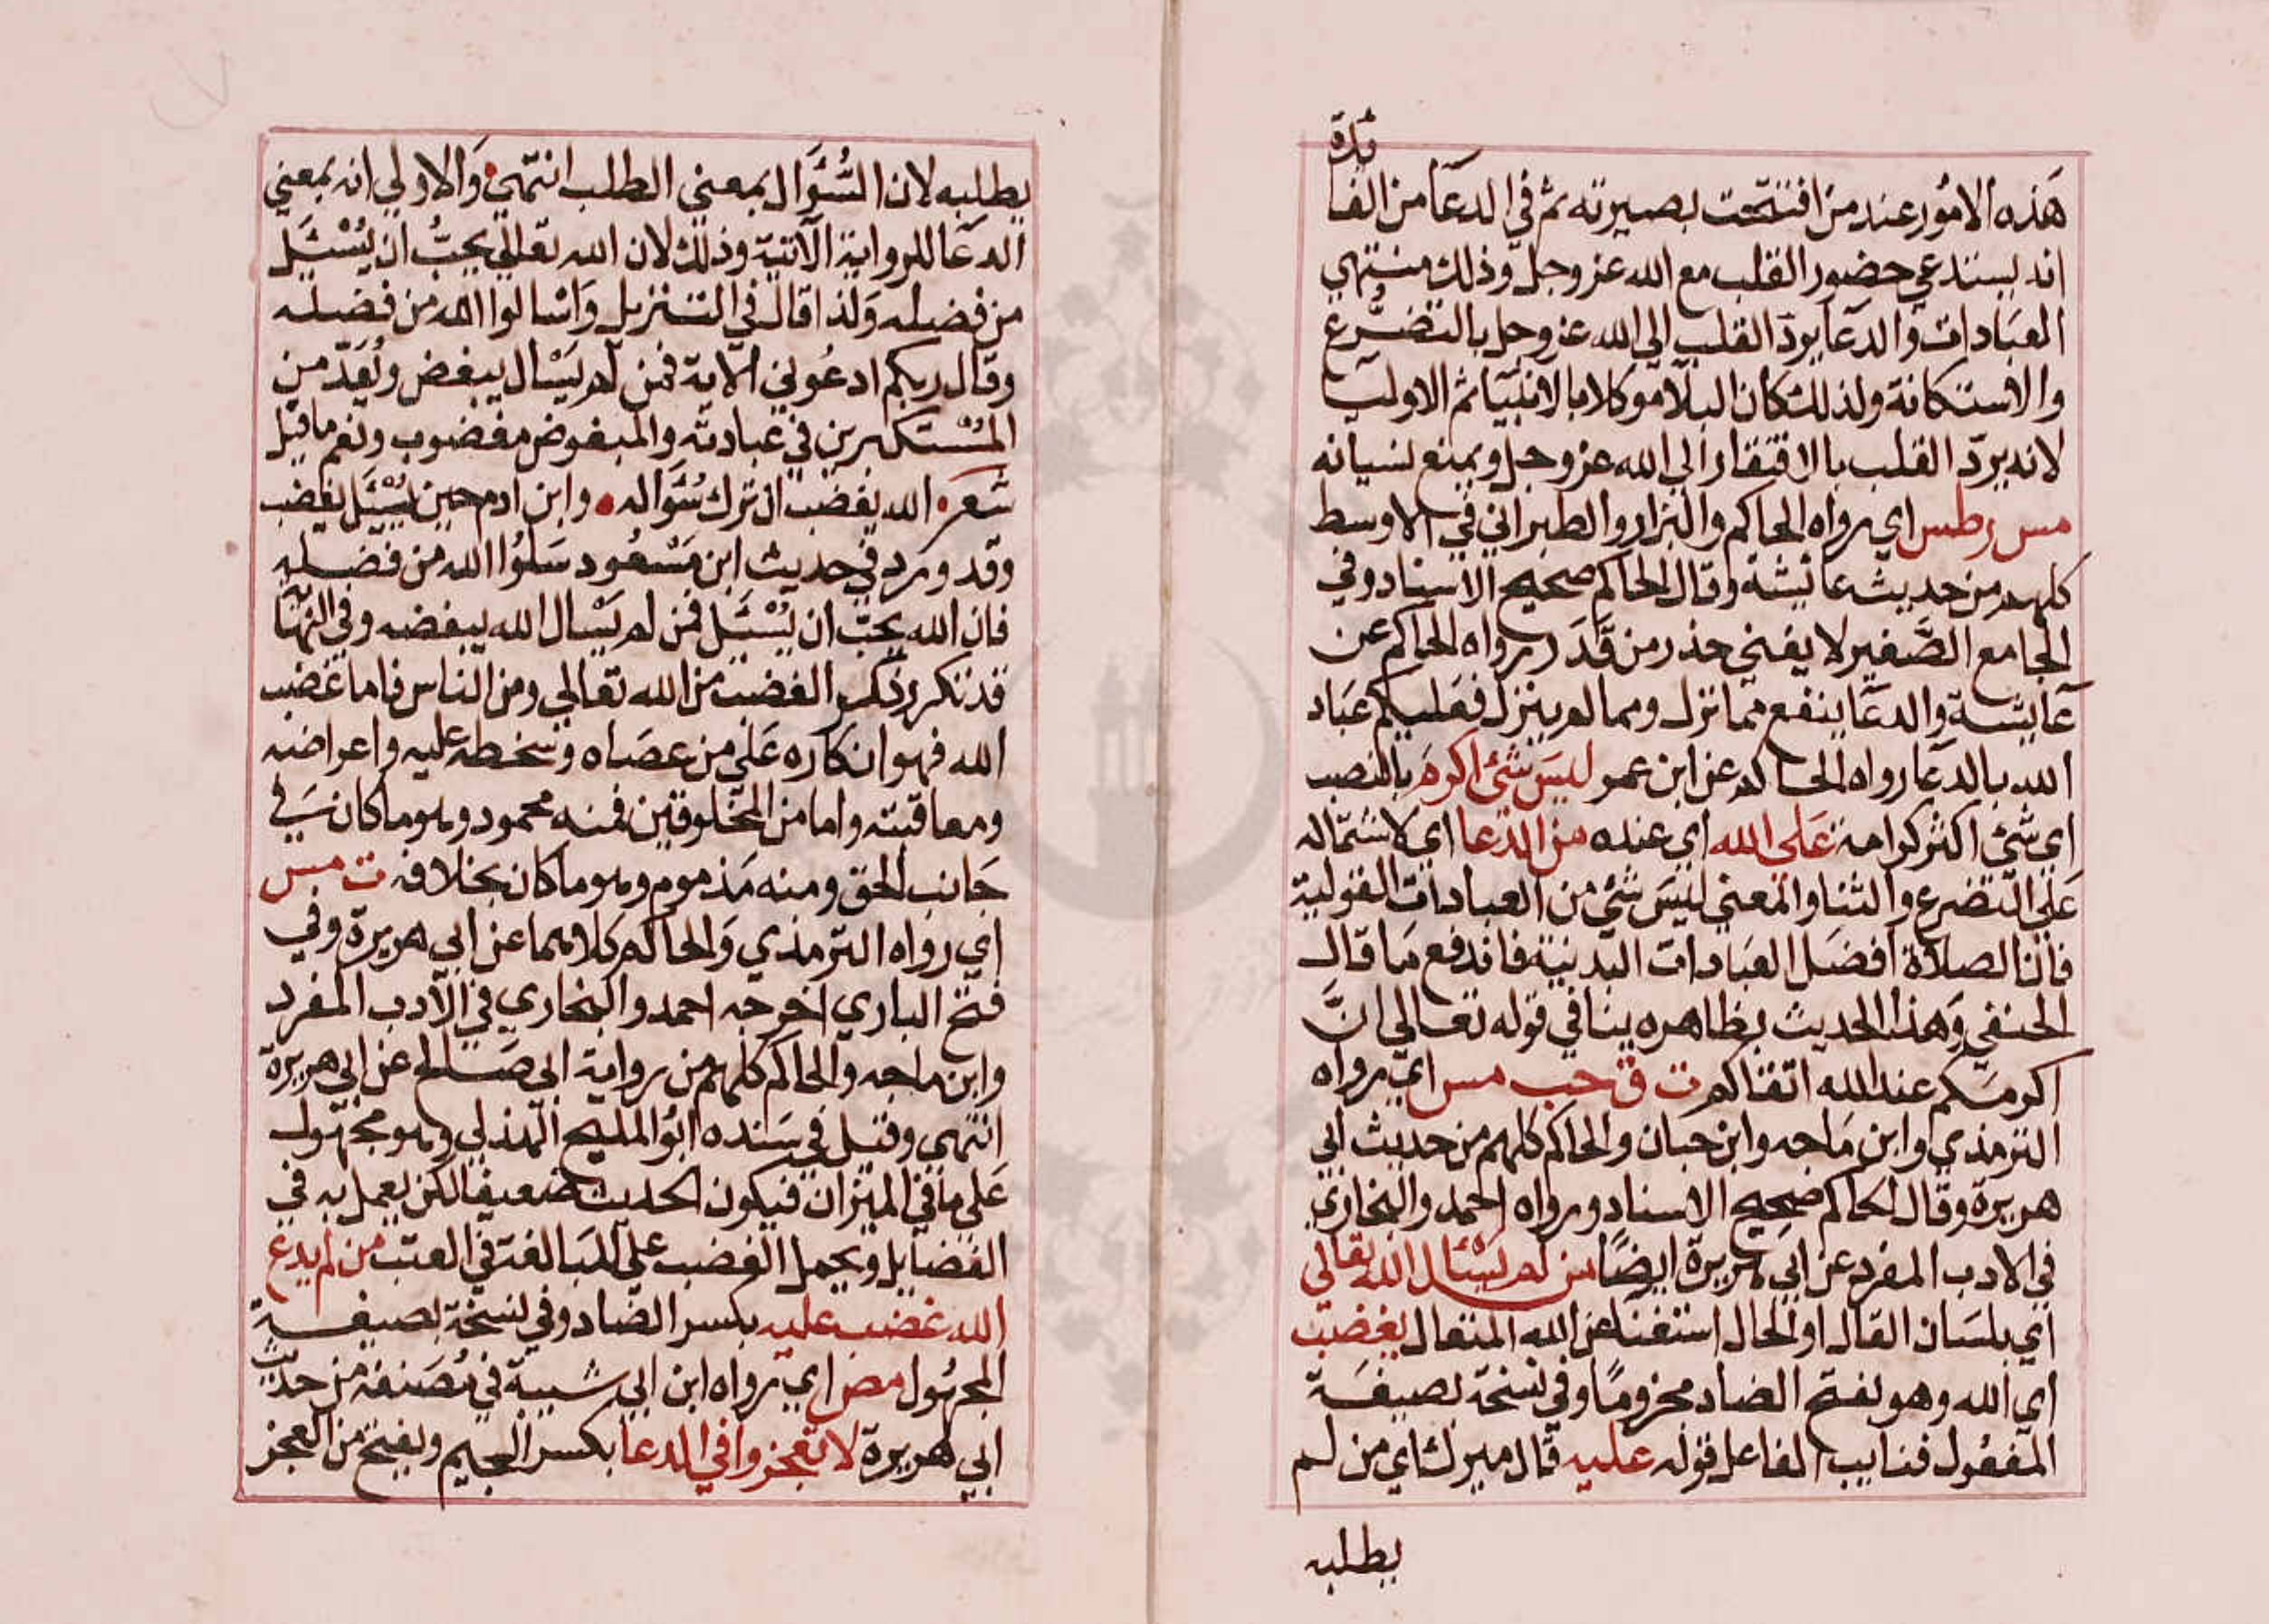 ئدة
هذه الامور عند من افتتحت بصيرته ثم في الدعا من الفا
انه يستدعي حضور القلب مع الله عز وجل وذلك منتهي
العبادات والدعا يرد القلب الي الله عز وجل بالتضرع
والاستكانة ولذلك كان البلا موكلا بالانبيا ثم الاوليا
لانه يرد القلب بالافتقار الي الله عز وجل ويمنع نسيانه
مس ر طس اي رواه الحاكم والبزار والطبراني في الاوسط
كلهم من حديث عائشة وقال الحاكم صحيح الاسناد وفي
الجامع الصغير لا يغني حذر من قدر رواه الحاكم عن
عايشة والدعا ينفع مما نزل ومما لم ينزل فعليكم عباد
الله بالدعا رواه الحاكم عن ابن عمر ليس شئ اكرم بالنصب
اي شئ اكثر كرامة علي الله اي عنده من الدعا اي لاشتماله
علي التضرع والثنا والمعني ليس شئ من العبادات القولية
فان الصلاة افضل العبادات البدنية فاندفع ما قال
الحنفي وهذا الحديث بظاهره ينافي قوله تعالي ان
اكرمكم عند الله اتقاكم ت ق حب مس اي رواه
الترمذي وابن ماجه وابن حبان والحاكم كلهم من حديث ابي
هريرة وقال الحاكم صحيح الاسناد ورواه احمد والبخاري
في الادب المفرد عن ابي هريرة ايضا من لم يسئال الله تعالي
اي بلسان القال او الحال استغنا عن الله المتعال يغضب
اي الله وهو بفتح الضاد مجزوما وفي نسخة بصيغة
المفعول فنايب الفاعل قوله عليه قال ميرك اي من لم
يطلبه
يطلبه لان السُّؤَال بمعني الطلب انتهي والاولي انه بمعني
الدعا للرواية الآتية وذلك لان الله تعالي يحبُّ ان يُسْئَل
من فضله ولذا قال في التنزيل واسالوا الله من فضله
وقال ربكم ادعوني الآية فمن لم يسْال يبغض ويُعَدّ من
المُسْتكبرين في عبادته والمبغوض مغضوب ونعم ما قيل
شعر الله يغضب ان تركت سُؤَاله وابن ادم حين يُسْئَل يغضب
وقد ورد في حديث ابن مسْعُود سَلوُا الله من فضله
فان الله يحبّ ان يُسْئَل فمن لم يسْال الله يبغضه وفي النهاية
قد تكرر ذكر الغضب من الله تعالي ومن الناس فاما غضب
الله فهو انكاره علي من عصاه وسخطه عليه واعراضه
ومعاقبته واما من المخلوقين فمنه محمود وهو ما كان في
جانب الحق ومنه مذموم وهو ما كان بخلافه ت مس
اي رواه الترمذي والحاكم كلاهما عن ابي هريرة وفي
فتح الباري اخرجه احمد والبخاري في الادب المفرد
وابن ماجه والحاكم كلهم من رواية ابي صالح عن ابي هريرة
انتهي وقيل في سنده ابو المليح الهذلي وهو مجهول
علي ما في الميزان فيكون الحديث ضعيفا لكن يعمل به في
الفضايل ويحمل الغضب علي المبالغة في العتب من لم يدع
الله غضب عليه بكسر الضاد وفي نسخة بصيغة
المجهول مص اي رواه ابن ابي شيبة في مُصَنفه من حديث
ابي هريرة لا تعجزوا في الدعا بكسر الجيم وبفتح من العجز